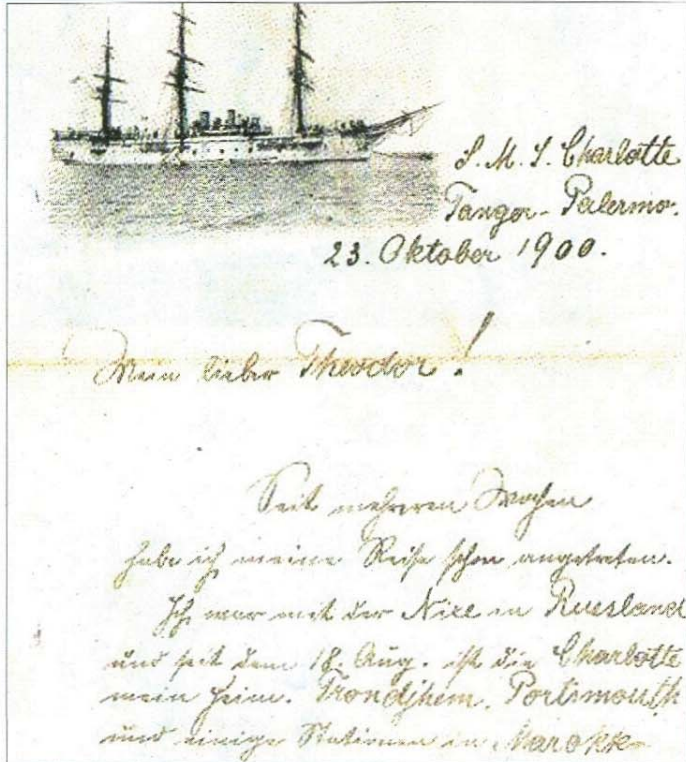 S. M. S. Charlotte
Tanger - Palermo.
23. Oktober 1900.
Mein lieber Theodor!
Seit mehreren Wochen
habe ich meine Reise schon angetreten.
Ich war mit der Nixe in Russland
und seit dem 18. Aug. ist die Charlotte
mein Heim. Trondjhem, Portsmouth
und einige Stationen in Marokko